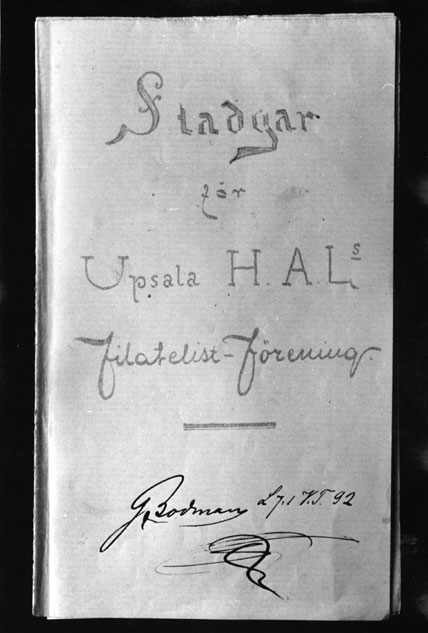 Stadgar
för
Upsala H.A.Ls
Filatelist-Förening.
G. Bodman L 7.1 V.T. 92